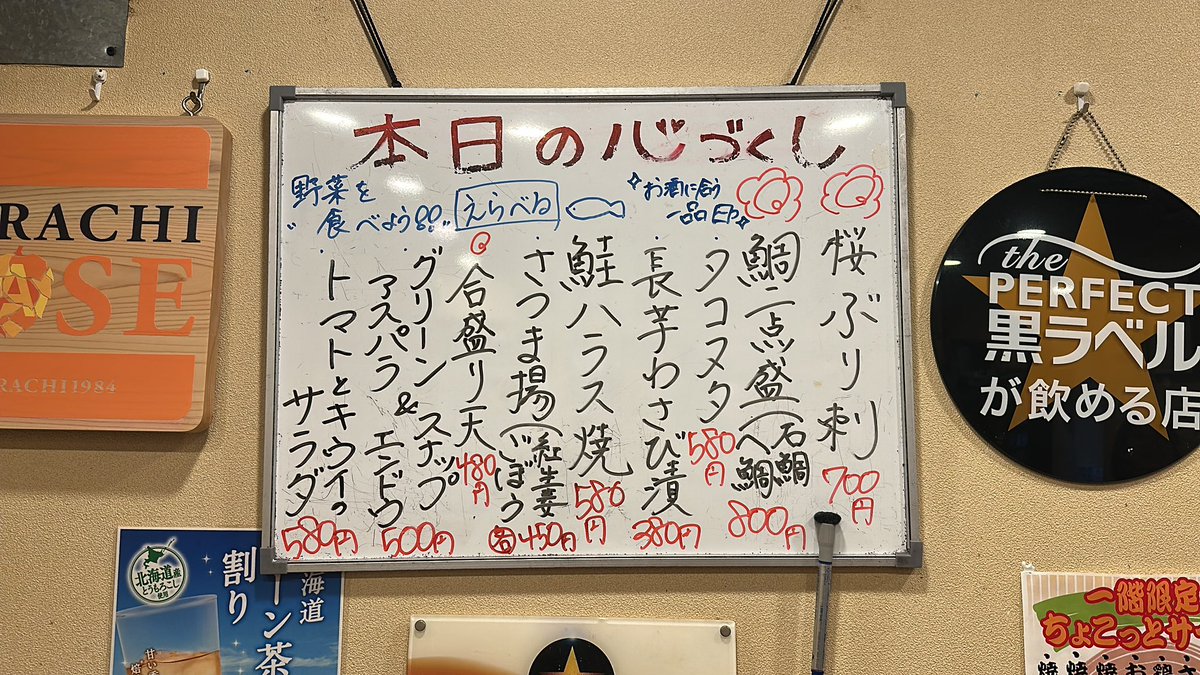 本日の心づくし
桜ぶり刺
700円
鯛二点盛(石鯛
へ鯛
800円
お酒に合う
一品を
タコヌタ
580円
長芋わさび漬
380円
鮭ハラス焼
580円
えらべる
さつま揚(紅生姜
ごぼう
各450円
合盛り天
480円
野菜を
"食べよう!!"
グリーン スナップ
アスパラ & エンドウ
500円
トマトとキウイの
サラダ
580円
RACHI
SE
RACHI1984
the
PERFECT
黒ラベル
が飲める店
北海道産
とうもろこし
使用
海道
ーン茶
割り
一階限定
ちょこっとサ